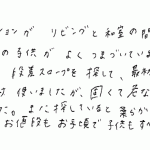 ションが リビングと和室の間
の子供が よくつまづいていま
段差スロープを探して、最初
使いましたが、固くて危な
た。また探していると 柔らか
お値段もお手頃で子供もす